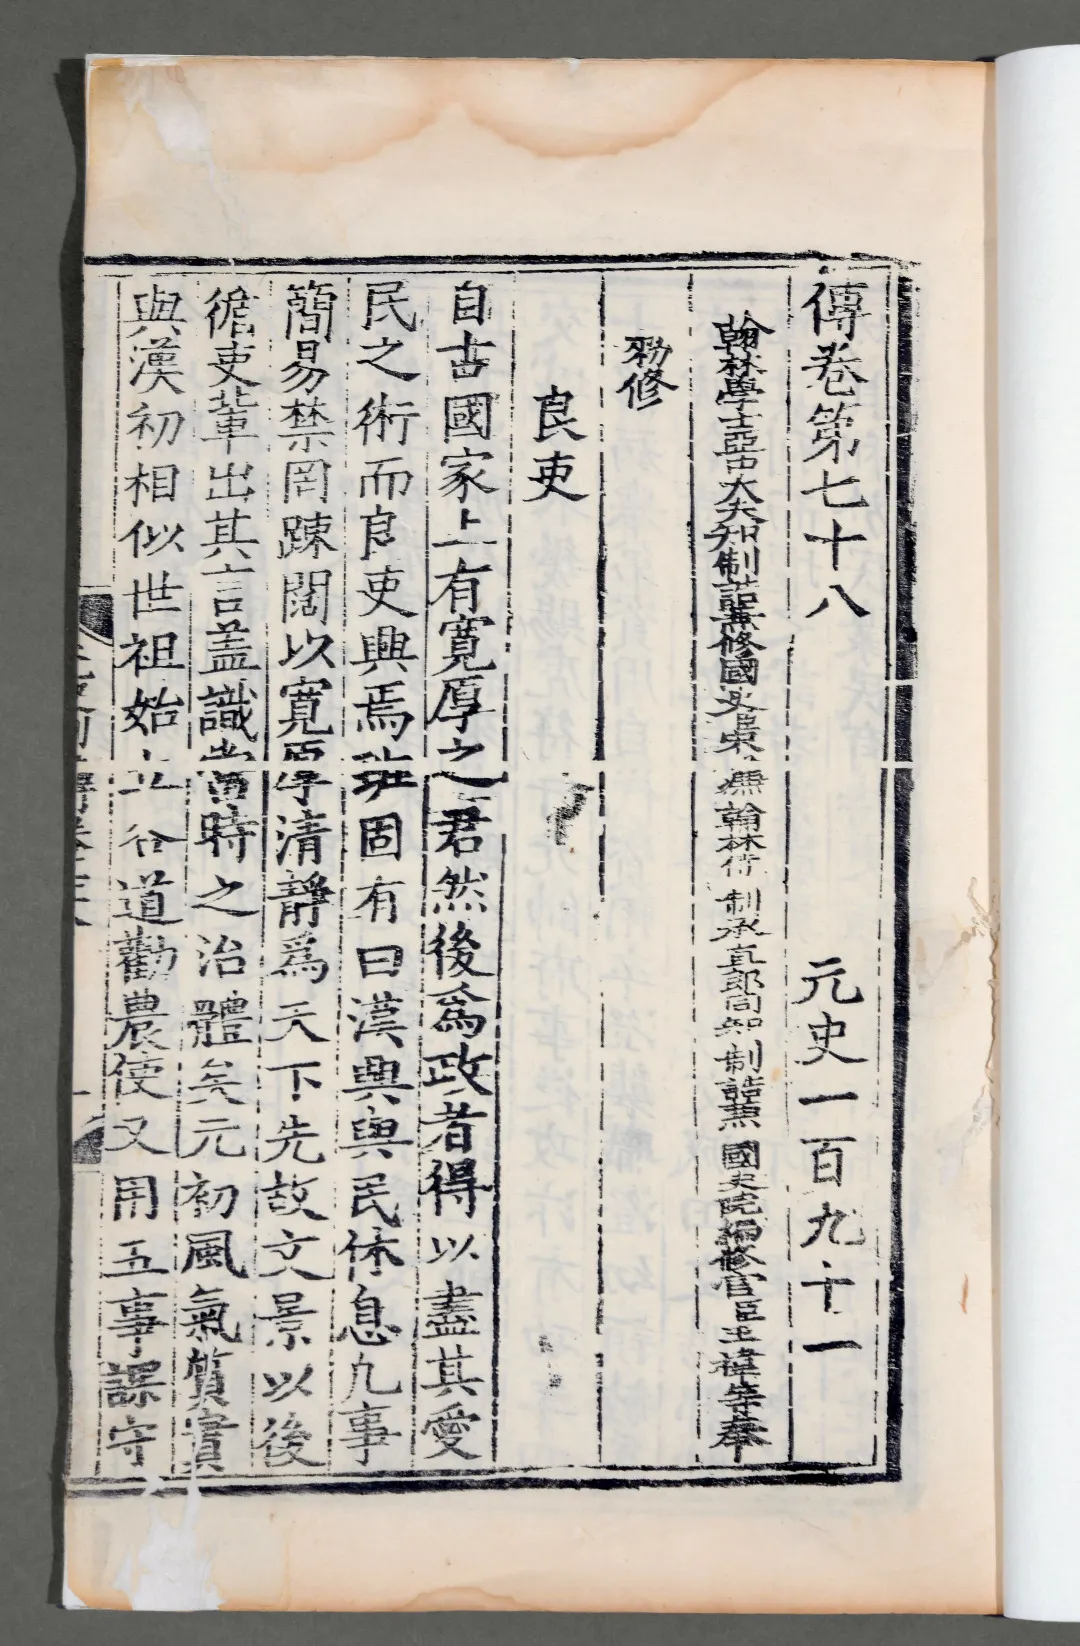 傳卷第七十八 元史一百九十一
翰林學士亞中大夫知制誥兼修國史臣宋濂翰林待制承直郎同知制誥兼國史院編修官臣王禕等奉
勑修
良吏
自古國家上有寬厚之君然後爲政者得以盡其愛
民之術而良吏興焉班固有曰漢興與民休息凡事
簡易禁罔疎闊以寬厚清靜爲天下先故文景以後
循吏軰出其言盖識當時之治體矣元初風氣質實
與漢初相似世祖始立各道勸農使又用五事課守